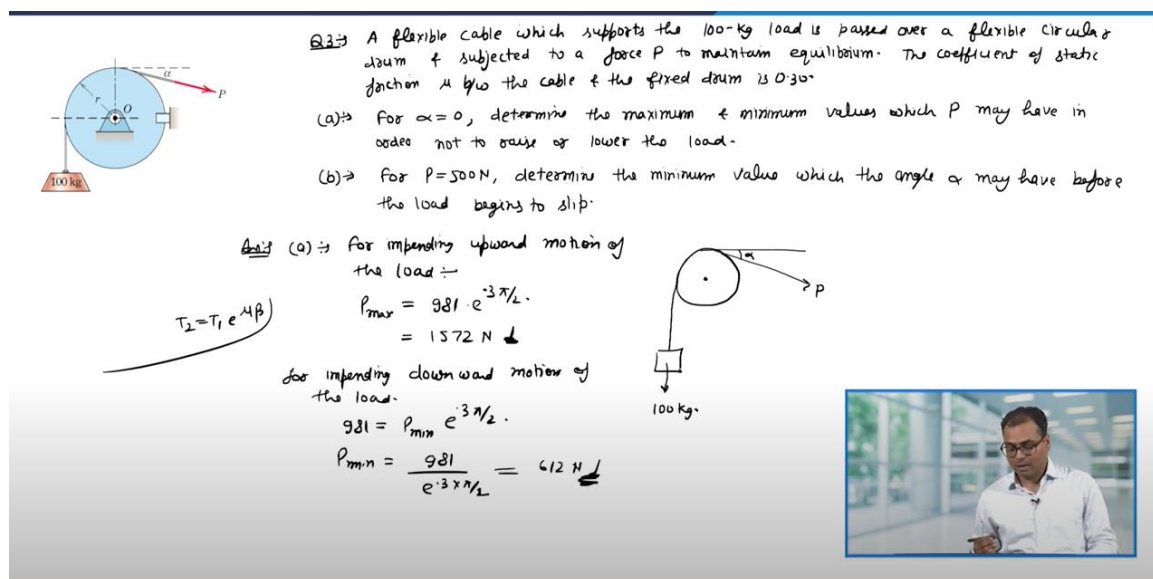 Q3:→ A flexible cable which supports the 100-kg load is passed over a flexible circular
drum & subjected to a force P to maintain equilibrium. The coefficient of static
friction μ b/w the cable & the fixed drum is 0.30.
(a):→ For α=0, determine the maximum & minimum values which P may have in
order not to raise or lower the load.
(b)→ For P=500N, determine the minimum value which the angle α may have before
the load begins to slip.
α
P
r
O
100 kg
Ans:→ (a):→ For impending upward motion of
the load:-
Pmax = 981 . e^.3π/2.
= 1572 N
T2=T1 e^μβ)
for impending downward motion of
the load.
981 = Pmin e^.3π/2.
Pmin = 981 / e^.3×π/2 = 612 N
α
P
100 kg.